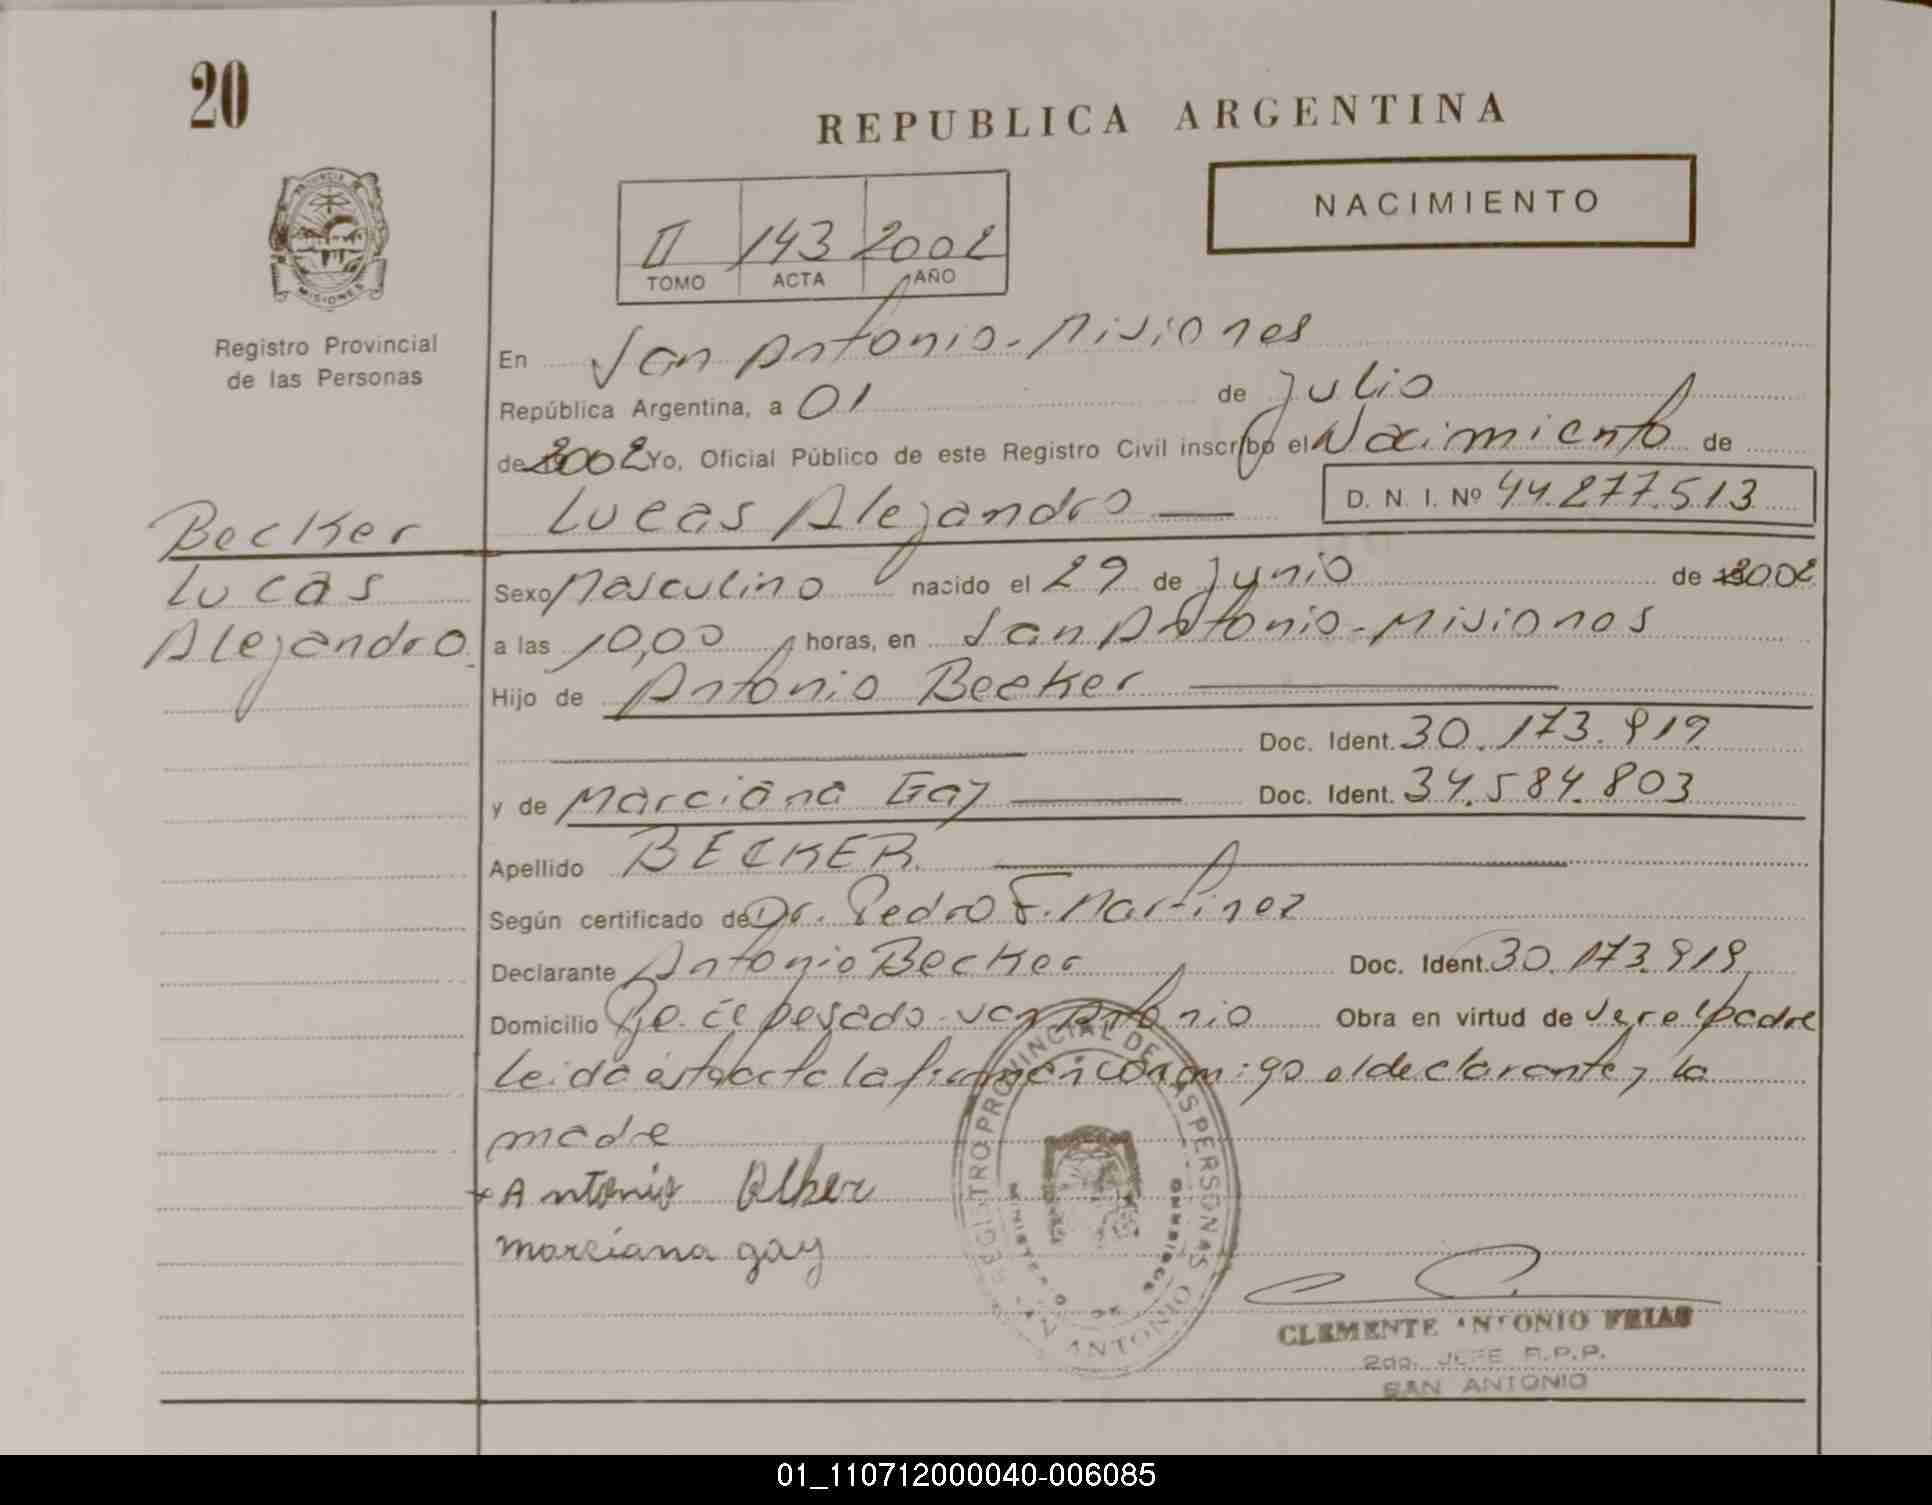 20
REPUBLICA ARGENTINA
NACIMIENTO
II 143 2002
TOMO ACTA AÑO
PROVINCIA DE
MISIONES
Registro Provincial
de las Personas
En San Antonio - Misiones
República Argentina, a 01 de Julio
de 2002 Yo, Oficial Público de este Registro Civil inscribo el Nacimiento de
Lucas Alejandro — D. N. I. Nº 44.277.513
Becker
Lucas
Alejandro
Sexo Masculino nacido el 29 de Junio de 2002
a las 10,00 horas, en San Antonio - Misiones
Hijo de Antonio Becker
Doc. Ident. 30.173.919
y de Marciana Gay — Doc. Ident. 34.584.803
Apellido BECKER.
Según certificado de Dr. Pedro F. Martinez
Declarante Antonio Becker Doc. Ident. 30.173.919
Domicilio San Antonio Obra en virtud de ser el padre
Leida esta acta la firman conmigo el declarante y la
madre
x Antonio
marciana gay
REGISTRO PROVINCIAL DE LAS PERSONAS
MINISTERIO DE GOBIERNO
SAN ANTONIO
CLEMENTE ANTONIO FRIAS
2do. JEFE R.P.P.
SAN ANTONIO
01_110712000040-006085